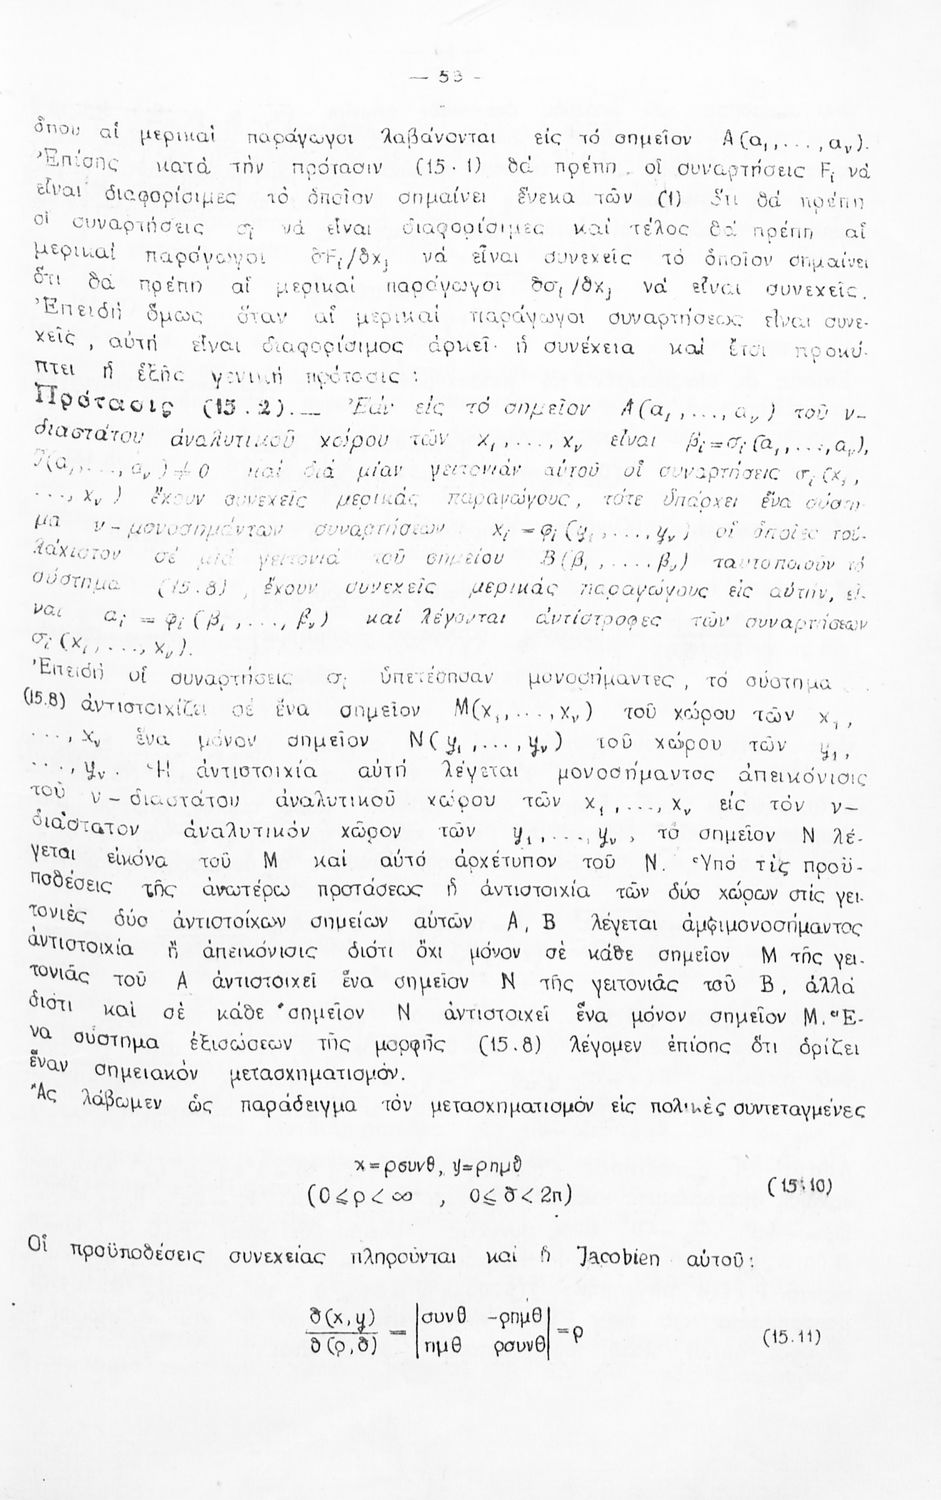 — 53 -
ὅπου αἱ μερικαί παράγωγοι λαβάνονται εἰς τό σημεῖον A(α₁,...,αᵥ).
Ἐπίσης κατά τήν πρότασιν (15.1) θά πρέπη οἱ συναρτήσεις Fᵢ νά
εἶναι διαφορίσιμες τό ὁποῖον σημαίνει ἕνεκα τῶν (1) ὅτι θά πρέπη
οἱ συναρτήσεις σᵢ νά εἶναι διαφορίσιμες καί τέλος θά πρέπη αἱ
μερικαί παράγωγοι ∂Fᵢ/∂xⱼ νά εἶναι συνεχεῖς τό ὁποῖον σημαίνει
ὅτι θά πρέπη αἱ μερικαί παράγωγοι ∂σᵢ/∂xⱼ νά εἶναι συνεχεῖς.
Ἐπειδή ὅμως ὅταν αἱ μερικαί παράγωγοι συναρτήσεως εἶναι συνε-
χεῖς, αὐτή εἶναι διαφορίσιμος ἀρκεῖ ἡ συνέχεια καί ἔτσι προκύ-
πτει ἡ ἑξῆς γενική πρότασις :
Πρότασις (15.2).— Ἐάν εἰς τό σημεῖον A(α₁,...,αᵥ) τοῦ ν-
διαστάτου ἀναλυτικοῦ χώρου τῶν x₁,...,xᵥ εἶναι βᵢ=σᵢ(α₁,...,αᵥ),
J(α₁,...,αᵥ)≠0 καί διά μίαν γειτονιάν αὐτοῦ οἱ συναρτήσεις σᵢ(x₁,
...,xᵥ) ἔχουν συνεχεῖς μερικάς παραγώγους, τότε ὑπάρχει ἕνα σύστη-
μα ν-μονοσημάντων συναρτήσεων xᵢ=φᵢ(y₁,...,yᵥ) οἱ ὁποῖες τοὐ-
λάχιστον σέ μιά γειτονιά τοῦ σημείου B(β₁,...,βᵥ) ταυτοποιοῦν τό
σύστημα (15.8), ἔχουν συνεχεῖς μερικάς παραγώγους εἰς αὐτήν, εἶ-
ναι αᵢ = φᵢ(β₁,...,βᵥ) καί λέγονται ἀντίστροφες τῶν συναρτήσεων
σᵢ(x₁,...,xᵥ).
Ἐπειδή οἱ συναρτήσεις σᵢ ὑπετέθησαν μονοσήμαντες, τό σύστημα
(15.8) ἀντιστοιχίζει σέ ἕνα σημεῖον M(x₁,...,xᵥ) τοῦ χώρου τῶν x₁,
...,xᵥ ἕνα μόνον σημεῖον N(y₁,...,yᵥ) τοῦ χώρου τῶν y₁,
...,yᵥ. Ἡ ἀντιστοιχία αὐτή λέγεται μονοσήμαντος ἀπεικόνισις
τοῦ ν-διαστάτου ἀναλυτικοῦ χώρου τῶν x₁,...,xᵥ εἰς τόν ν-
διάστατον ἀναλυτικόν χῶρον τῶν y₁,...,yᵥ, τό σημεῖον N λέ-
γεται εἰκόνα τοῦ M καί αὐτό ἀρχέτυπον τοῦ N. Ὑπό τίς προϋ-
ποθέσεις τῆς ἀνωτέρω προτάσεως ἡ ἀντιστοιχία τῶν δύο χώρων στίς γει-
τονιές δύο ἀντιστοίχων σημείων αὐτῶν A, B λέγεται ἀμφιμονοσήμαντος
ἀντιστοιχία ἤ ἀπεικόνισις διότι ὄχι μόνον σέ κάθε σημεῖον M τῆς γει-
τονιᾶς τοῦ A ἀντιστοιχεῖ ἕνα σημεῖον N τῆς γειτονιᾶς τοῦ B, ἀλλά
διότι καί σέ κάθε σημεῖον N ἀντιστοιχεῖ ἕνα μόνον σημεῖον M. Ἕ-
να σύστημα ἐξισώσεων τῆς μορφῆς (15.8) λέγομεν ἐπίσης ὅτι ὁρίζει
ἕναν σημειακόν μετασχηματισμόν.
Ἄς λάβωμεν ὡς παράδειγμα τόν μετασχηματισμόν εἰς πολικές συντεταγμένες
x=ρσυνθ, y=ρημθ
(0≤ρ<∞ , 0≤θ<2π) (15.10)
Οἱ προϋποθέσεις συνεχείας πληροῦνται καί ἡ Jacobien αὐτοῦ:
∂(x,y) |συνθ -ρημθ|
―――― = =ρ (15.11)
∂(ρ,θ) |ημθ ρσυνθ|